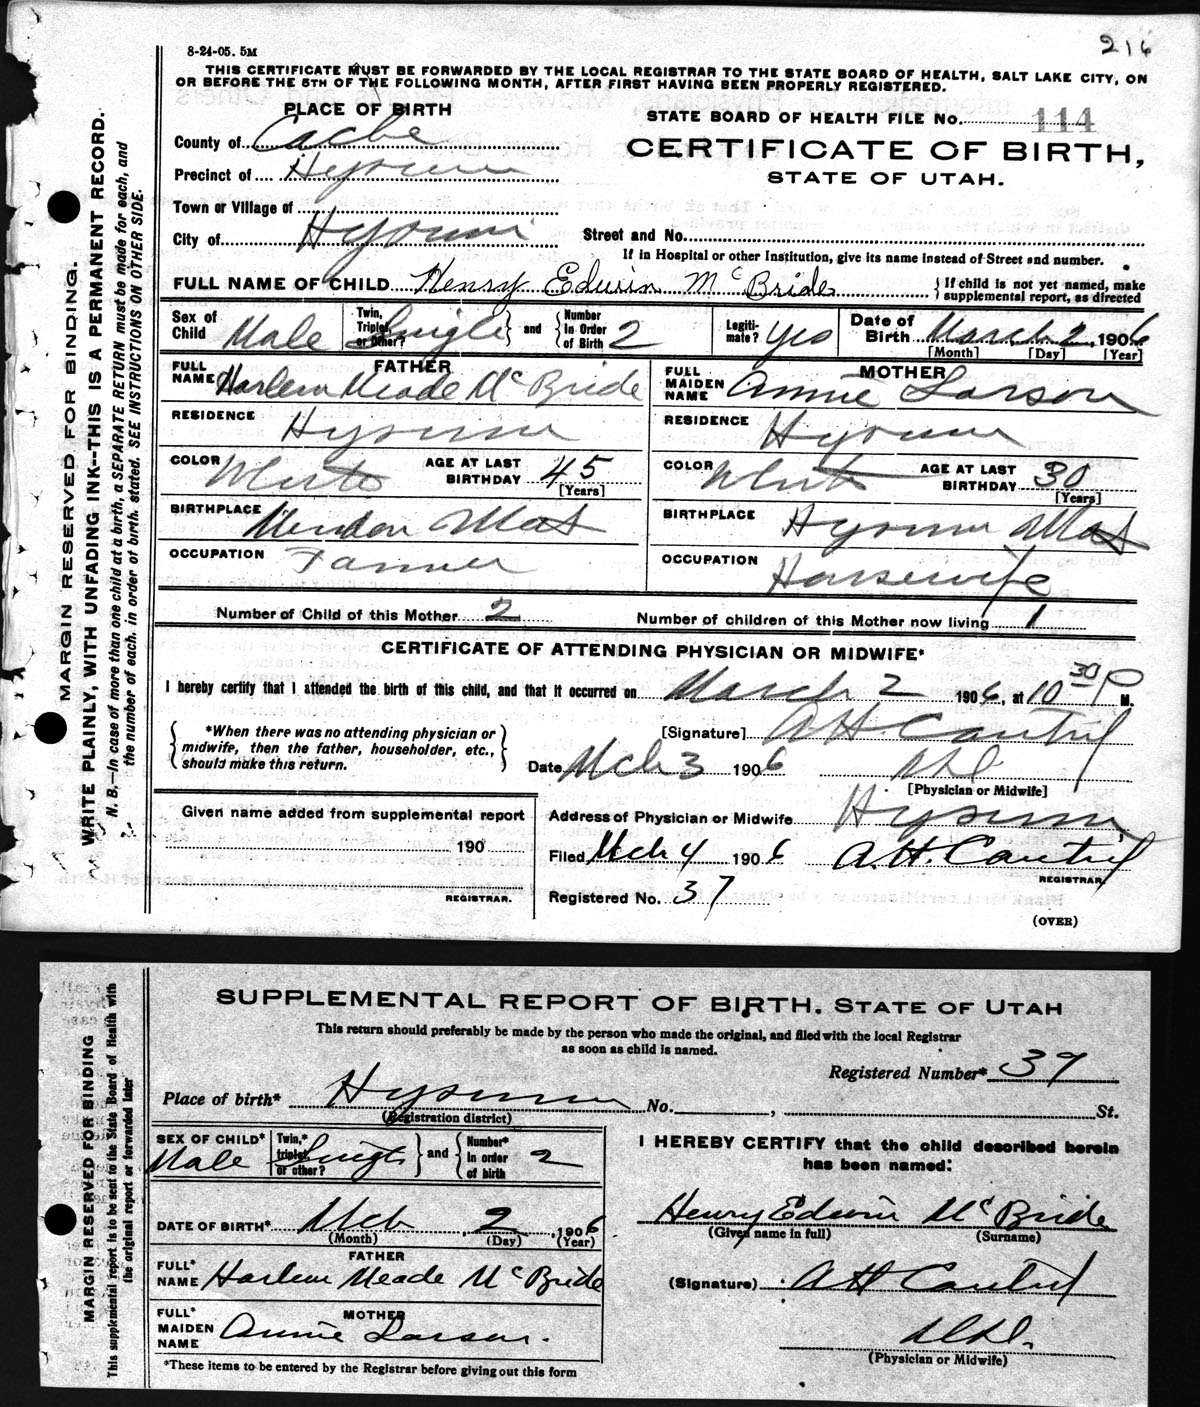 216
8-24-05. 5M
THIS CERTIFICATE MUST BE FORWARDED BY THE LOCAL REGISTRAR TO THE STATE BOARD OF HEALTH, SALT LAKE CITY, ON
OR BEFORE THE 5TH OF THE FOLLOWING MONTH, AFTER FIRST HAVING BEEN PROPERLY REGISTERED.
PLACE OF BIRTH
STATE BOARD OF HEALTH FILE No. 114
County of Cache
CERTIFICATE OF BIRTH,
Precinct of Hyrum
STATE OF UTAH.
Town or Village of
City of Hyrum
Street and No.
If in Hospital or other Institution, give its name instead of Street and number.
FULL NAME OF CHILD Henry Edwin McBride { If child is not yet named, make supplemental report, as directed
Sex of Child Male Twin, Triplet, or Other? Single } and { Number In Order of Birth 2 Legitimate? yes Date of Birth March 2, 1906
[Month] [Day] [Year]
FATHER
FULL NAME Harlem Meade McBride
MOTHER
FULL MAIDEN NAME Annie Larson
RESIDENCE Hyrum
RESIDENCE Hyrum
COLOR White AGE AT LAST BIRTHDAY 45 [Years]
COLOR White AGE AT LAST BIRTHDAY 30 [Years]
BIRTHPLACE Mendon Utah
BIRTHPLACE Hyrum Utah
OCCUPATION Farmer
OCCUPATION Housewife
Number of Child of this Mother 2 Number of children of this Mother now living 1
CERTIFICATE OF ATTENDING PHYSICIAN OR MIDWIFE*
I hereby certify that I attended the birth of this child, and that it occurred on March 2 1906, at 10 30 P M.
{ *When there was no attending physician or midwife, then the father, householder, etc., should make this return. }
[Signature] A H Cantril
Date Mch 3 1906 MD
[Physician or Midwife]
Given name added from supplemental report
190
REGISTRAR.
Address of Physician or Midwife Hyrum
Filed Mch 4 1906 A. H. Cantril
REGISTRAR.
Registered No. 37
(OVER)
MARGIN RESERVED FOR BINDING.
WRITE PLAINLY, WITH UNFADING INK--THIS IS A PERMANENT RECORD.
N. B.—In case of more than one child at a birth, a SEPARATE RETURN must be made for each, and
the number of each, in order of birth, stated. SEE INSTRUCTIONS ON OTHER SIDE.
SUPPLEMENTAL REPORT OF BIRTH. STATE OF UTAH
This return should preferably be made by the person who made the original, and filed with the local Registrar
as soon as child is named.
Registered Number* 37
Place of birth* Hyrum No. , St.
(Registration district)
SEX OF CHILD* Male Twin,* triplet, or other? Single } and { Number* in order of birth 2
I HEREBY CERTIFY that the child described herein
has been named:
DATE OF BIRTH* Mch 2, 1906
(Month) (Day) (Year)
Henry Edwin McBride
(Given name in full) (Surname)
FATHER
FULL* NAME Harlem Meade McBride
(Signature) A H Cantril
MOTHER
FULL* MAIDEN NAME Annie Larson.
M.D.
(Physician or Midwife)
*These items to be entered by the Registrar before giving out this form
MARGIN RESERVED FOR BINDING
This supplemental report is to be sent to the State Board of Health with
the original report or forwarded later